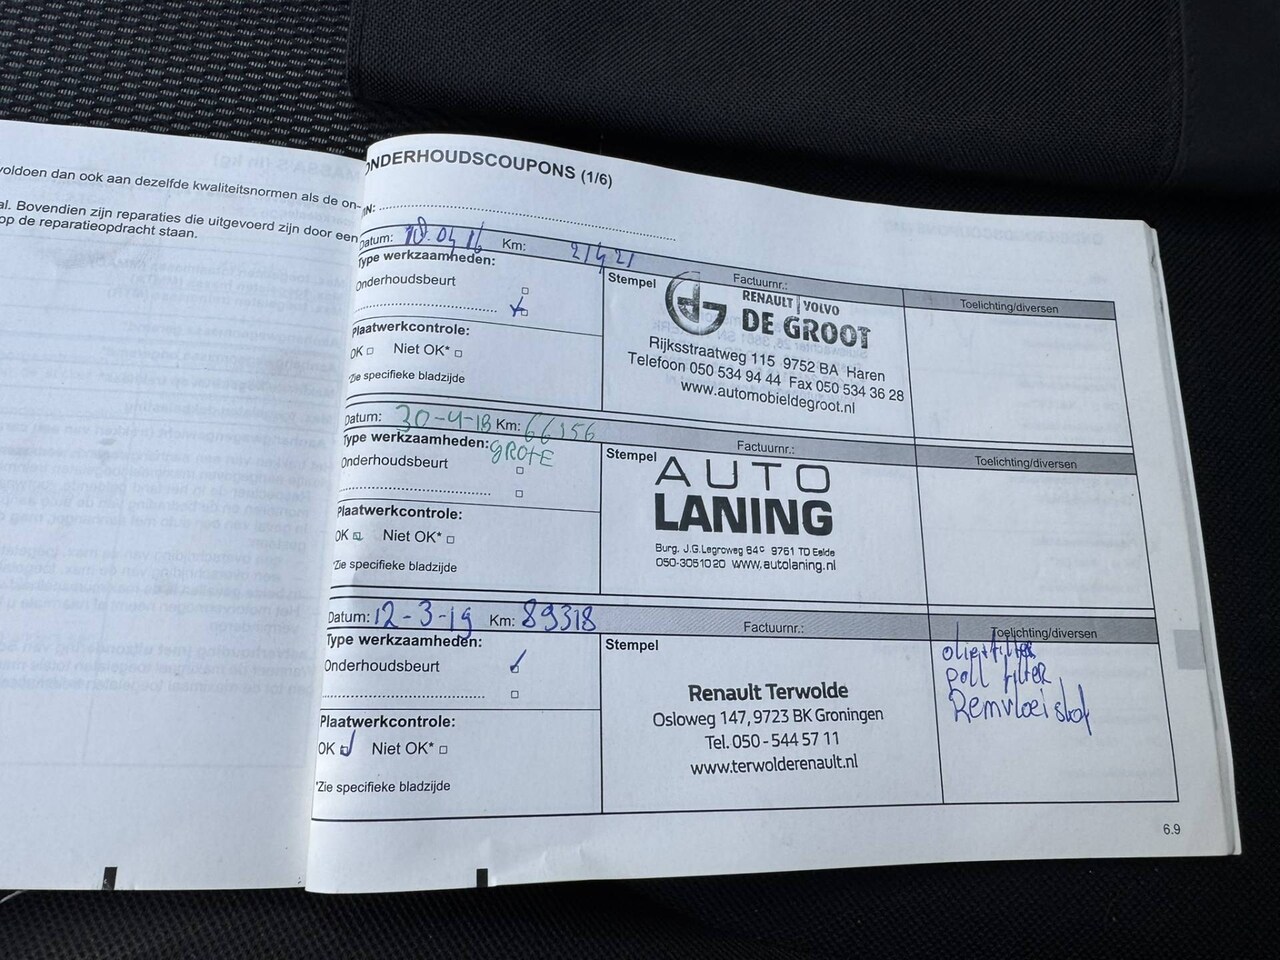 voldoen dan ook aan dezelfde kwaliteitsnormen als de on-
al. Bovendien zijn reparaties die uitgevoerd zijn door een
op de reparatieopdracht staan.
ONDERHOUDSCOUPONS (1/6)
IN:
Datum: 18.04 16 Km: 21421 Factuurnr.: Toelichting/diversen
Type werkzaamheden:
Onderhoudsbeurt
Plaatwerkcontrole:
OK Niet OK*
*Zie specifieke bladzijde
Stempel
RENAULT | VOLVO
DE GROOT
Rijksstraatweg 115 9752 BA Haren
Telefoon 050 534 94 44 Fax 050 534 36 28
www.automobieldegroot.nl
Datum: 30-4-18 Km: 66156 Factuurnr.: Toelichting/diversen
Type werkzaamheden: GROTE
Onderhoudsbeurt
Plaatwerkcontrole:
OK Niet OK*
*Zie specifieke bladzijde
Stempel
AUTO
LANING
Burg. J.G.Legroweg 64c 9761 TD Eelde
050-3051020 www.autolaning.nl
Datum: 12-3-19 Km: 89318 Factuurnr.: Toelichting/diversen
Type werkzaamheden:
Onderhoudsbeurt
Plaatwerkcontrole:
OK Niet OK*
*Zie specifieke bladzijde
Stempel
Renault Terwolde
Osloweg 147, 9723 BK Groningen
Tel. 050 - 544 57 11
www.terwolderenault.nl
olie+filter
poll filter
Remvloeistof
6.9